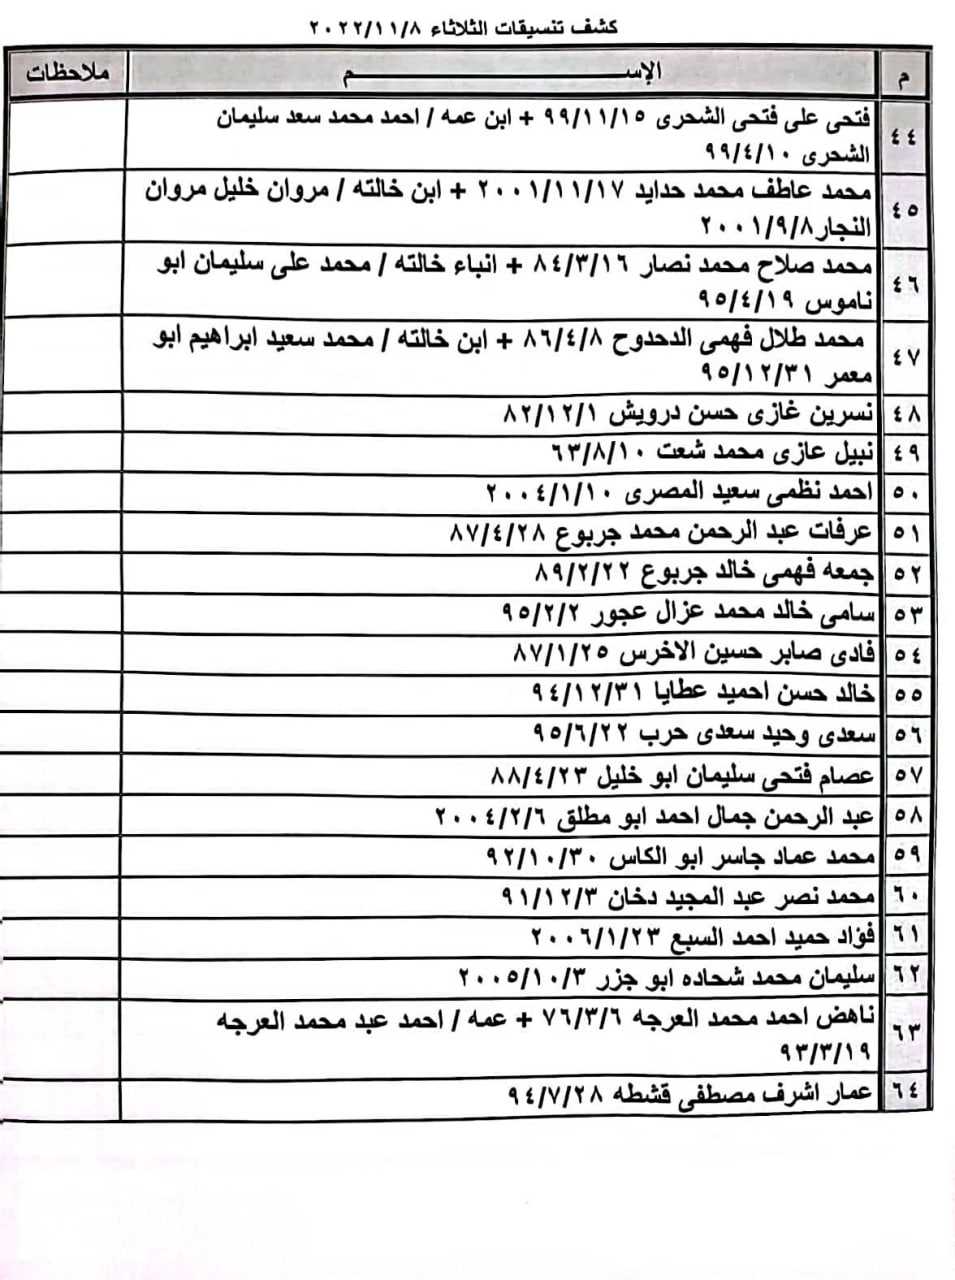 كشف تنسيقات الثلاثاء ٢٠٢٢/١١/٨
م الإســــــم ملاحظات
٤٤ فتحى على فتحى الشحرى ٩٩/١١/١٥ + ابن عمه / احمد محمد سعد سليمان
الشحرى ٩٩/٤/١٠
٤٥ محمد عاطف محمد حدايد ٢٠٠١/١١/١٧ + ابن خالته / مروان خليل مروان
النجار ٢٠٠١/٩/٨
٤٦ محمد صلاح محمد نصار ٨٤/٣/١٦ + انباء خالته / محمد على سليمان ابو
ناموس ٩٥/٤/١٩
٤٧ محمد طلال فهمى الدحدوح ٨٦/٤/٨ + ابن خالته / محمد سعيد ابراهيم ابو
معمر ٩٥/١٢/٣١
٤٨ نسرين غازى حسن درويش ٨٢/١٢/١
٤٩ نبيل عازى محمد شعت ٦٣/٨/١٠
٥٠ احمد نظمى سعيد المصرى ٢٠٠٤/١/١٠
٥١ عرفات عبد الرحمن محمد جربوع ٨٧/٤/٢٨
٥٢ جمعه فهمى خالد جربوع ٨٩/٢/٢٢
٥٣ سامى خالد محمد عزال عجور ٩٥/٢/٢
٥٤ فادى صابر حسين الاخرس ٨٧/١/٢٥
٥٥ خالد حسن احميد عطايا ٩٤/١٢/٣١
٥٦ سعدى وحيد سعدى حرب ٩٥/٦/٢٢
٥٧ عصام فتحى سليمان ابو خليل ٨٨/٤/٢٣
٥٨ عبد الرحمن جمال احمد ابو مطلق ٢٠٠٤/٢/٦
٥٩ محمد عماد جاسر ابو الكاس ٩٢/١٠/٣٠
٦٠ محمد نصر عبد المجيد دخان ٩١/١٢/٣
٦١ فؤاد حميد احمد السبع ٢٠٠٦/١/٢٣
٦٢ سليمان محمد شحاده ابو جزر ٢٠٠٥/١٠/٣
٦٣ ناهض احمد محمد العرجه ٧٦/٣/٦ + عمه / احمد عبد محمد العرجه
٩٣/٣/١٩
٦٤ عمار اشرف مصطفى قشطه ٩٤/٧/٢٨